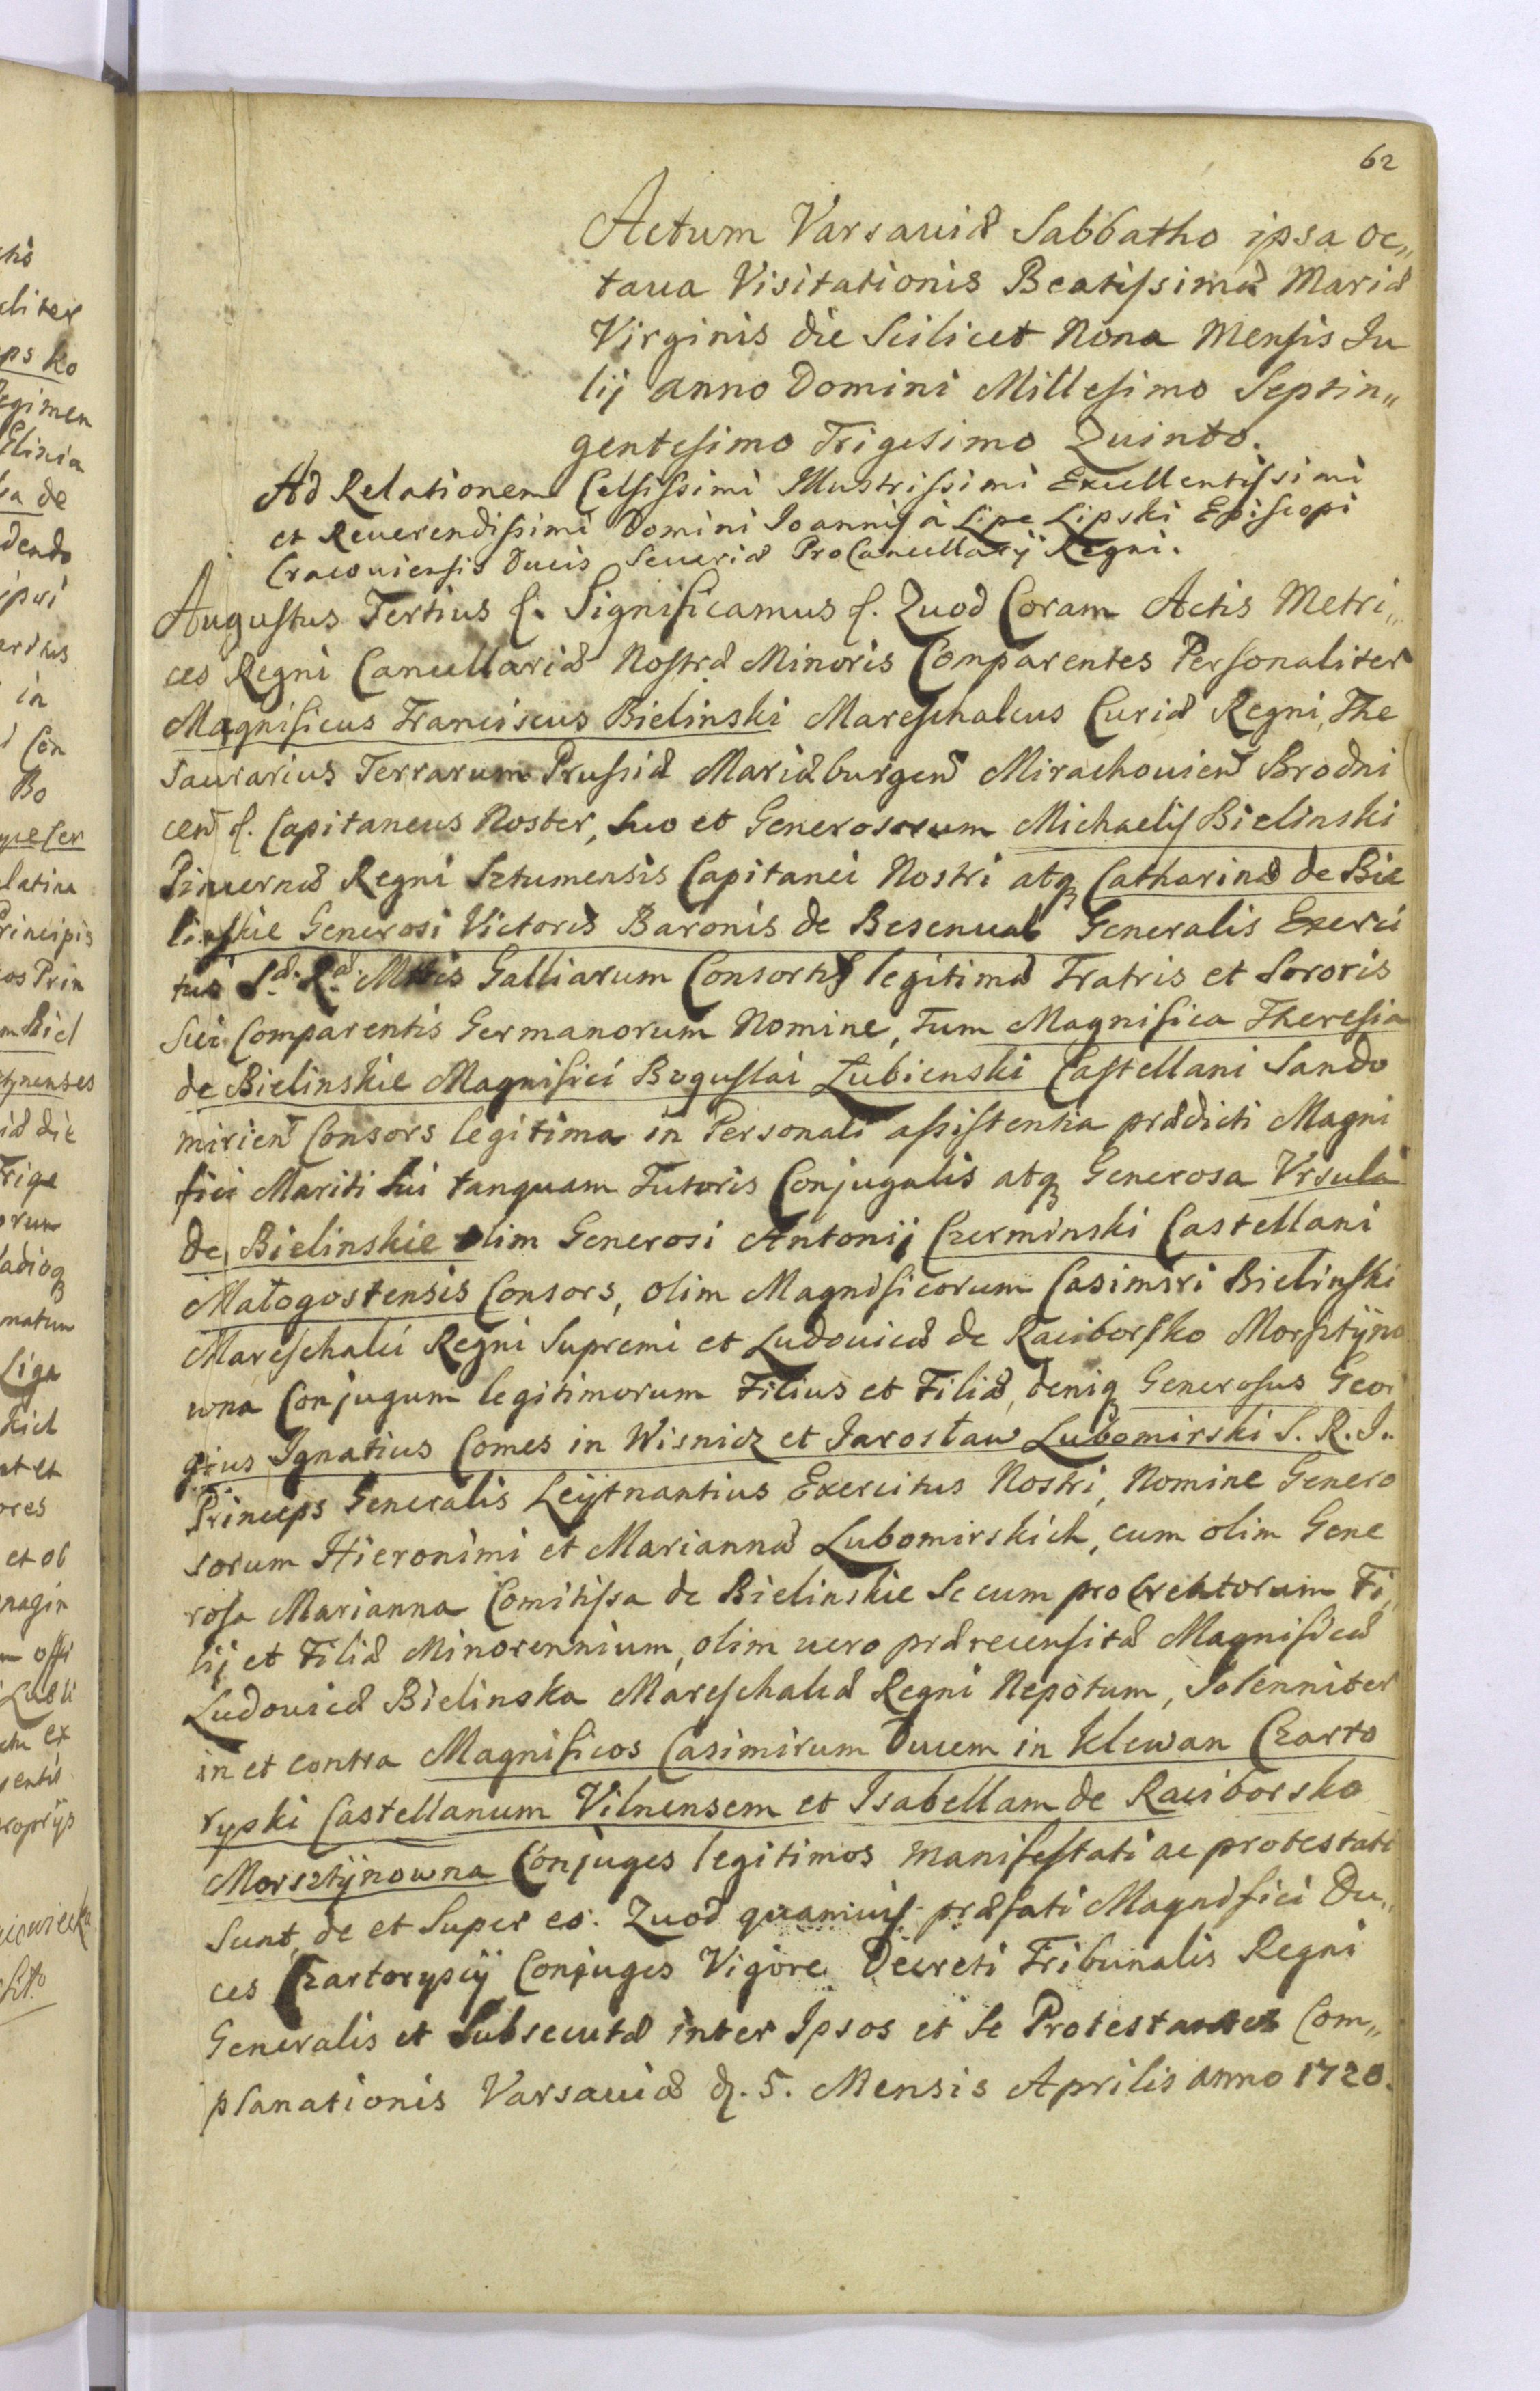 62
Actum Varsaviæ Sabbatho ipsa oc„
taua Visitationis Beatissimæ Mariæ
Virginis die Scilicet Nona Mensis Ju
lij anno Domini Millesimo Septin„
gentesimo Trigesimo Quinto.
Ad Relationem Celsissimi Illustrissimi Excellentissimi
et Reuerendissimi Domini Ioannis à Lipe Lipski Episcopi
Cracouiensis Ducis Seueriæ ProCancellarij Regni.
Augustus Tertius &. Significamus &. Quod Coram Actis Metri„
ces Regni Cancellariæ Nostræ Minoris Comparentes Personaliter
Magnificus Franciscus Bielinski Mareschalcus Curiæ Regni, The
saurarius Terrarum Prussiæ Mariæburgen Mirachouien Brodni
cen &. Capitaneus Noster, Suo et Generosorum Michaelis Bielinski
Pincernæ Regni Sztumensis Capitanei Nostri atq Catharinæ de Bie
linskie Generosi Victoris Baronis de Besenual Generalis Exerci
tus Sæ. Ræ. Mttis Galliarum Consortis legitimæ Fratris et Sororis
Sui Comparentis Germanorum Nomine, Tum Magnifica Theresia
de Bielinskie Magnifici Boguslai Łubienski Castellani Sando
mirien Consors legitima in Personali assistentia prædicti Magni
fici Mariti Sui tanquam Tutoris Conjugalis atq Generosa Vrsula
de Bielinskie olim Generosi Antonij Czerminski Castellani
Małogostensis Consors, olim Magnificorum Casimiri Bielinski
Mareschalci Regni Supremi et Ludouicæ de Raciborsko Morsztÿno
wna Conjugum legitimorum Filius et Filiæ, deniq Generosus Geor
gius Ignatius Comes in Wisnicz et Jarosław Lubomirski S. R. I.
Princeps Generalis Leÿtnantius Exercitus Nostri, Nomine Genero
sorum Hieronimi et Mariannæ Lubomirskich, cum olim Gene
rosa Marianna Comitissa de Bielinskie Secum procreatorum Fi„
lij et Filiæ Minorennium, olim uero præрecensitæ Magnificæ
Ludouicæ Bielinska Mareschalcæ Regni Nepotum, Solenniter
in et contra Magnificos Casimirum Ducem in Klewan Czarto
ryski Castellanum Vilnensem et Isabellam de Raciborsko
Morsztÿnowna Conjuges legitimos manifestati ac protestati
Sunt, de et Super eo. Quod quamuis præfati Magnifici Du„
ces Czartoryscij Conjuges Vigore Decreti Tribunalis Regni
Generalis et Subsecutæ inter Ipsos et Se Protestantes Com„
planationis Varsauiæ d. 5. Mensis Aprilis anno 1728.